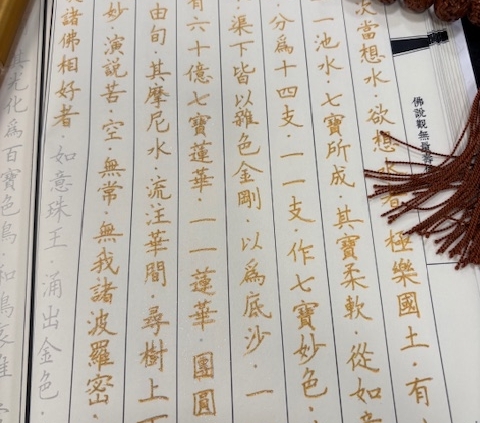 佛說觀無量壽
次當想水·欲想水者·極樂國土·有
一池水·七寶所成·其寶柔軟·從如意
分爲十四支·一一支·作七寶妙色·
渠下皆以雜色金剛·以爲底沙·一
有六十億七寶蓮華·一一蓮華·團圓
由旬·其摩尼水·流注華間·尋樹上下
妙·演說苦·空·無常·無我諸波羅密·
諸佛相好者·如意珠王·涌出金色·
其光化爲百寶色鳥·和鳴哀雅·